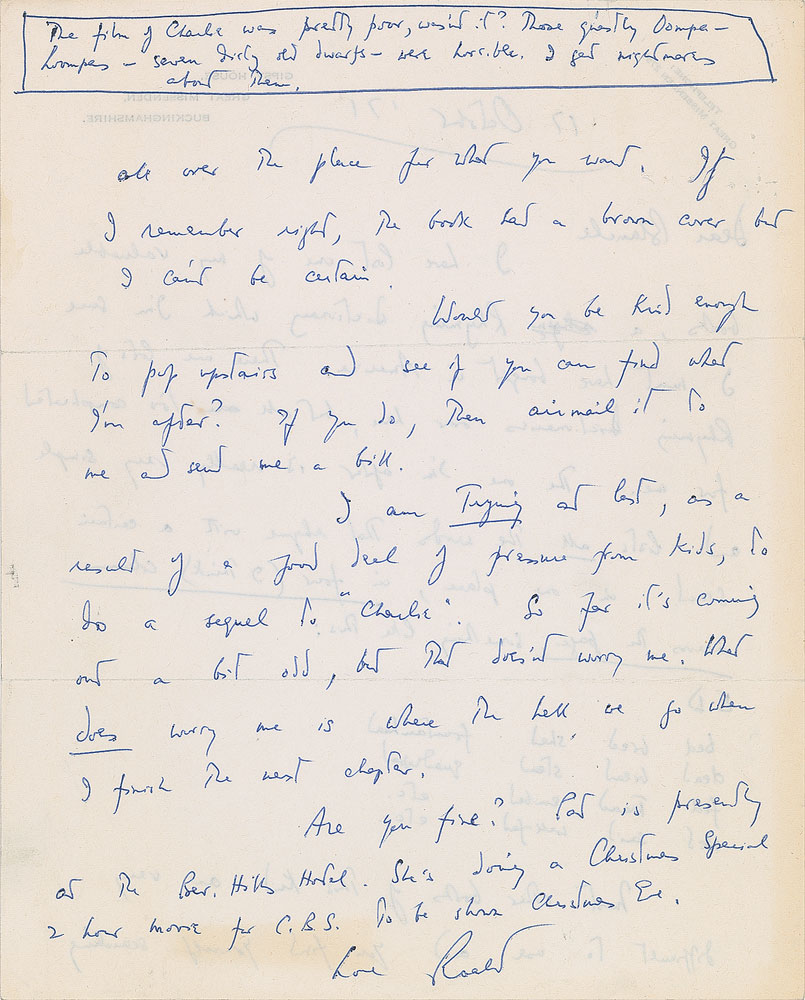 The film of Charlie was pretty poor, wasn't it? Those ghastly Oompa-
Loompas - seven dirty old dwarfs - were horrible. I get nightmares
about them.
all over the place for what you want. If
I remember right, the book had a brown cover but
I can't be certain.
Would you be kind enough
To pop upstairs and see if you can find what
I'm after? If you do, then airmail it to
me and send me a bill.
I am Trying at last, as a
result of a good deal of pressure from kids, to
do a sequel to "Charlie". So far it's coming
out a bit odd, but that doesn't worry me. What
does worry me is where the hell we go when
I finish the next chapter.
Are you fine? Pat is presently
at the Bev. Hills Hotel. She's doing a Christmas Special
2 hour movie for C.B.S. To be shown Christmas Eve.
Love Roald
GIPSY HOUSE,
GREAT MISSENDEN,
BUCKINGHAMSHIRE.